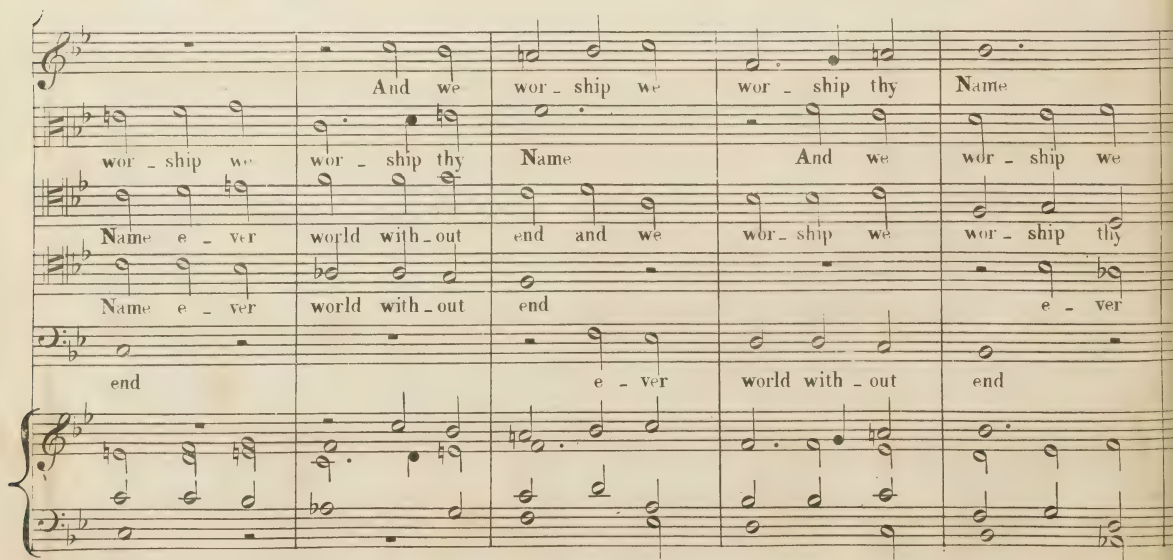 And we wor - ship we wor - ship thy Name
wor - ship we wor - ship thy Name And we wor - ship we
Name e - ver world with - out end and we wor - ship we wor - ship thy
Name e - ver world with - out end e - ver
end e - ver world with - out end